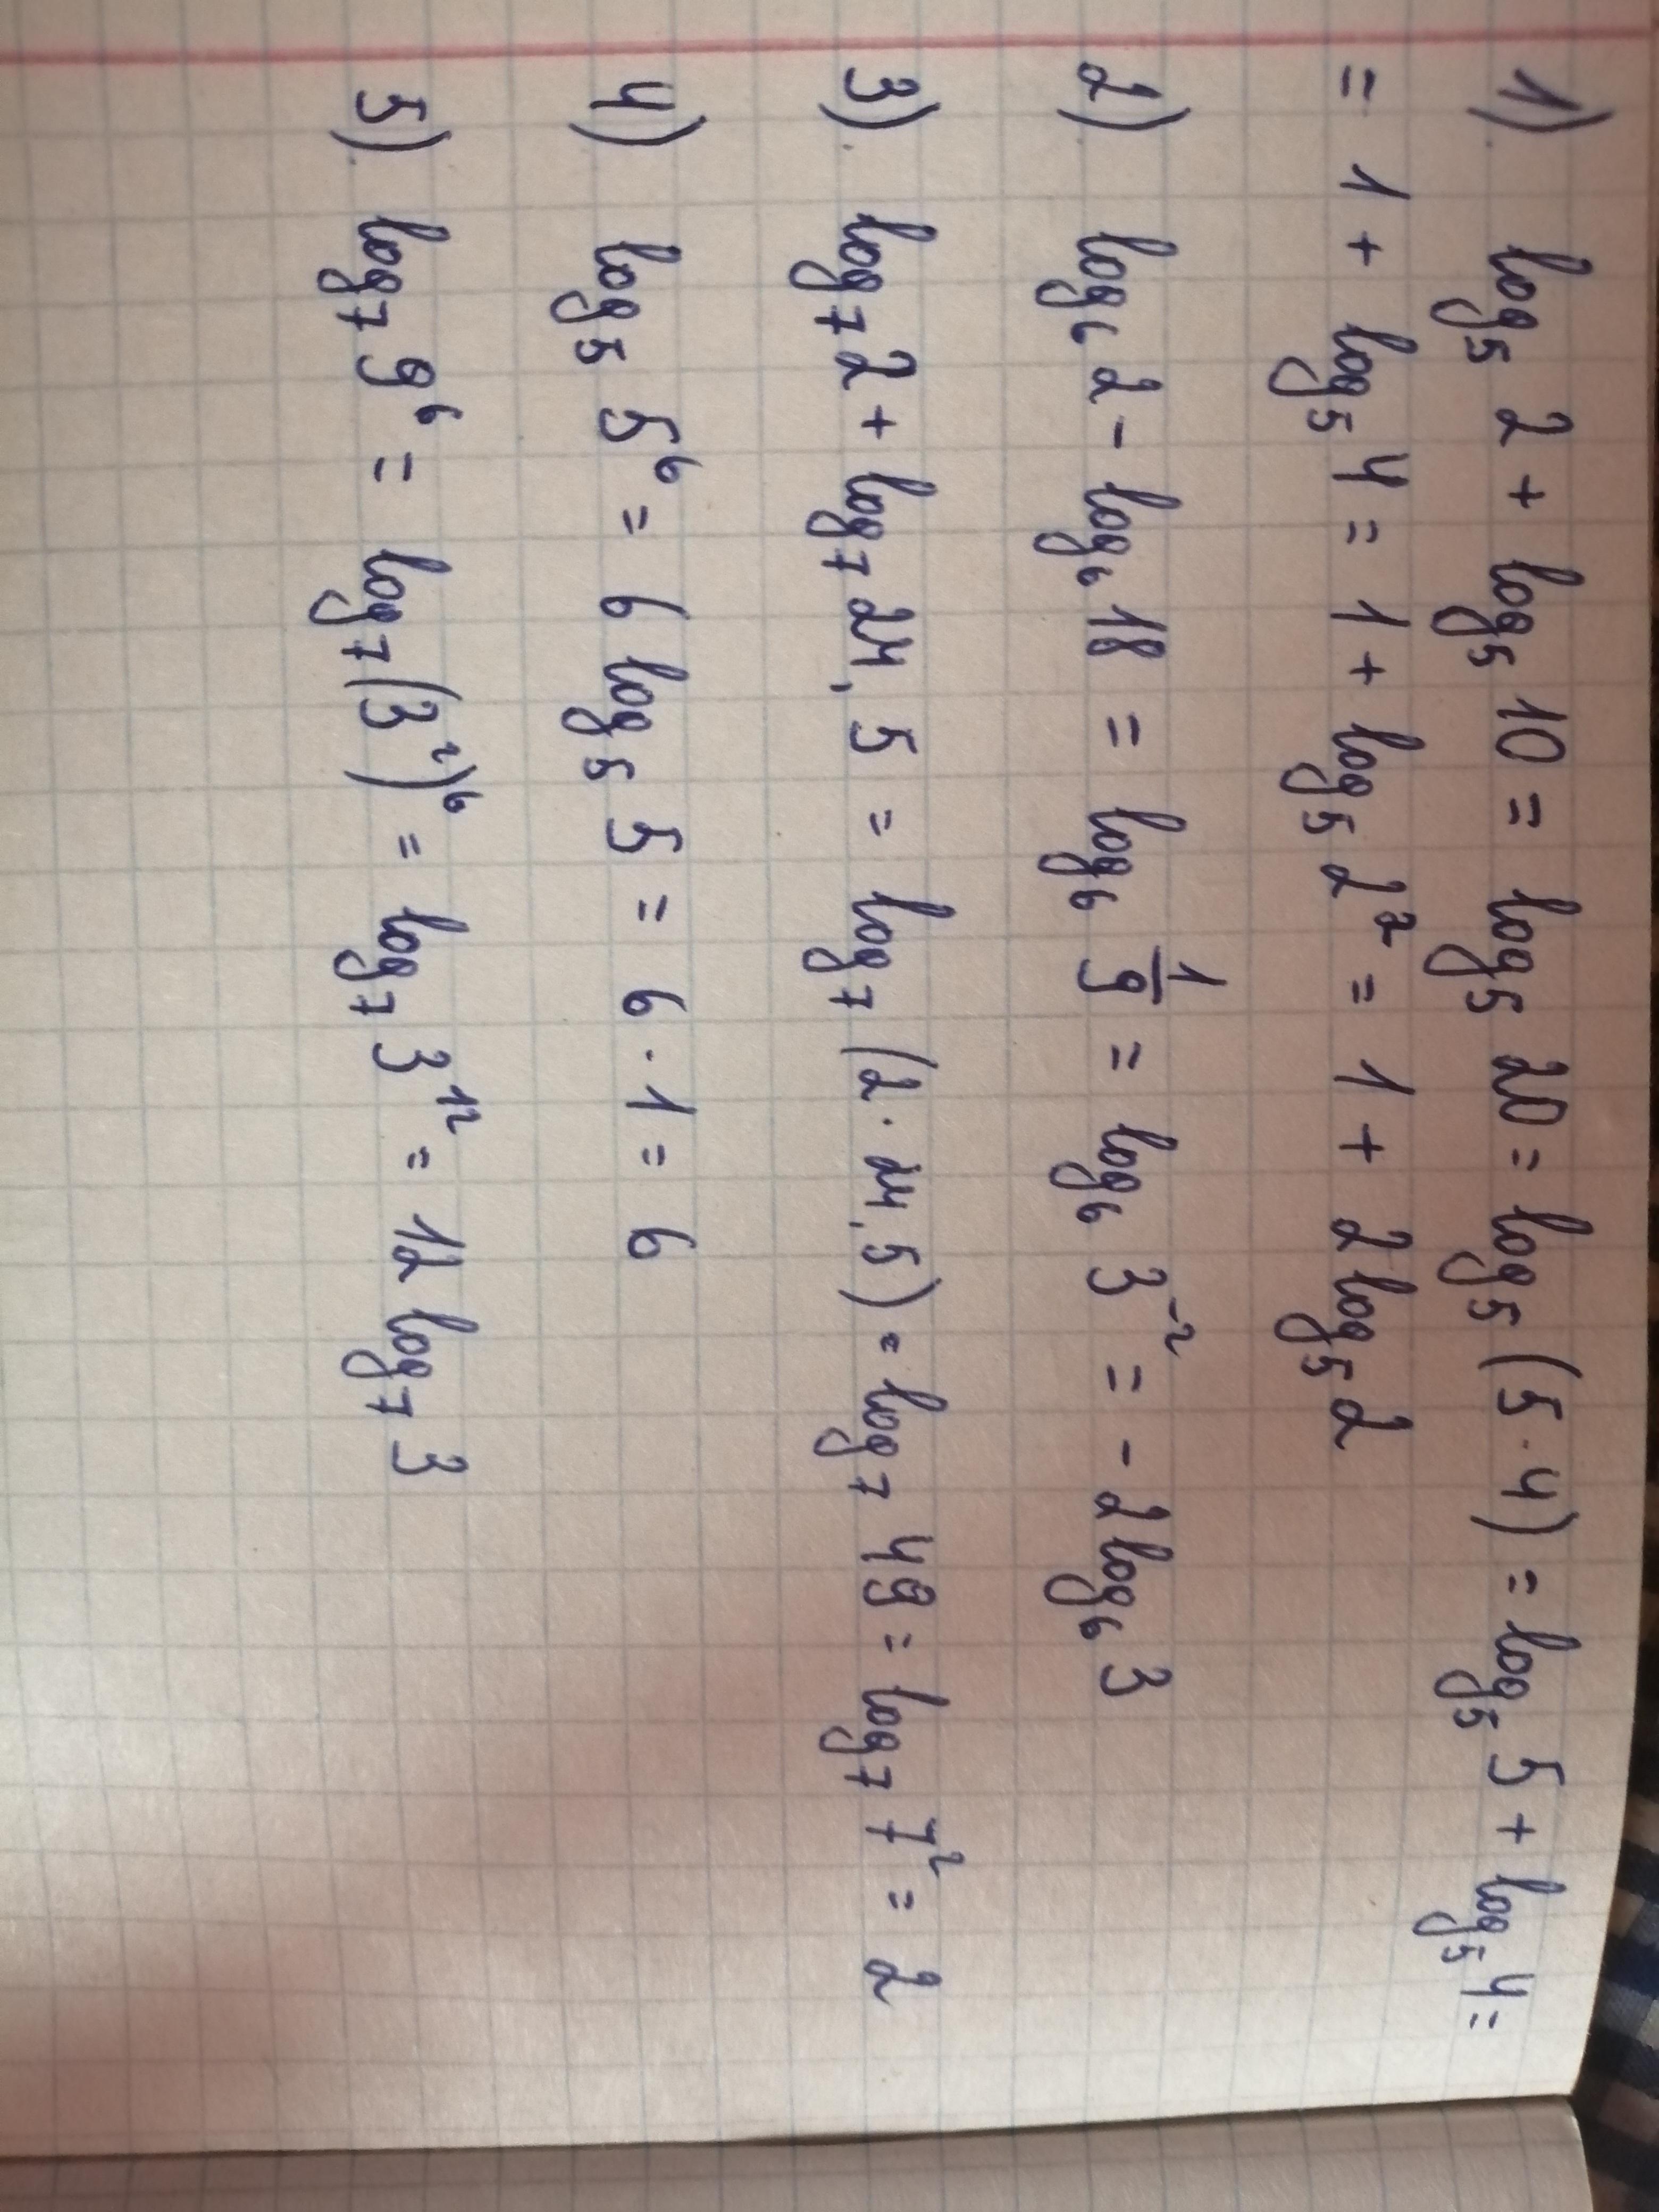 1) log₅ 2 + log₅ 10 = log₅ 20 = log₅ (5 · 4) = log₅ 5 + log₅ 4 =
= 1 + log₅ 4 = 1 + log₅ 2² = 1 + 2 log₅ 2
2) log₆ 2 - log₆ 18 = log₆ 1/9 = log₆ 3⁻² = - 2 log₆ 3
3) log₇ 2 + log₇ 24,5 = log₇ (2 · 24,5) = log₇ 49 = log₇ 7² = 2
4) log₅ 5⁶ = 6 log₅ 5 = 6 · 1 = 6
5) log₇ 9⁶ = log₇ (3²)⁶ = log₇ 3¹² = 12 log₇ 3